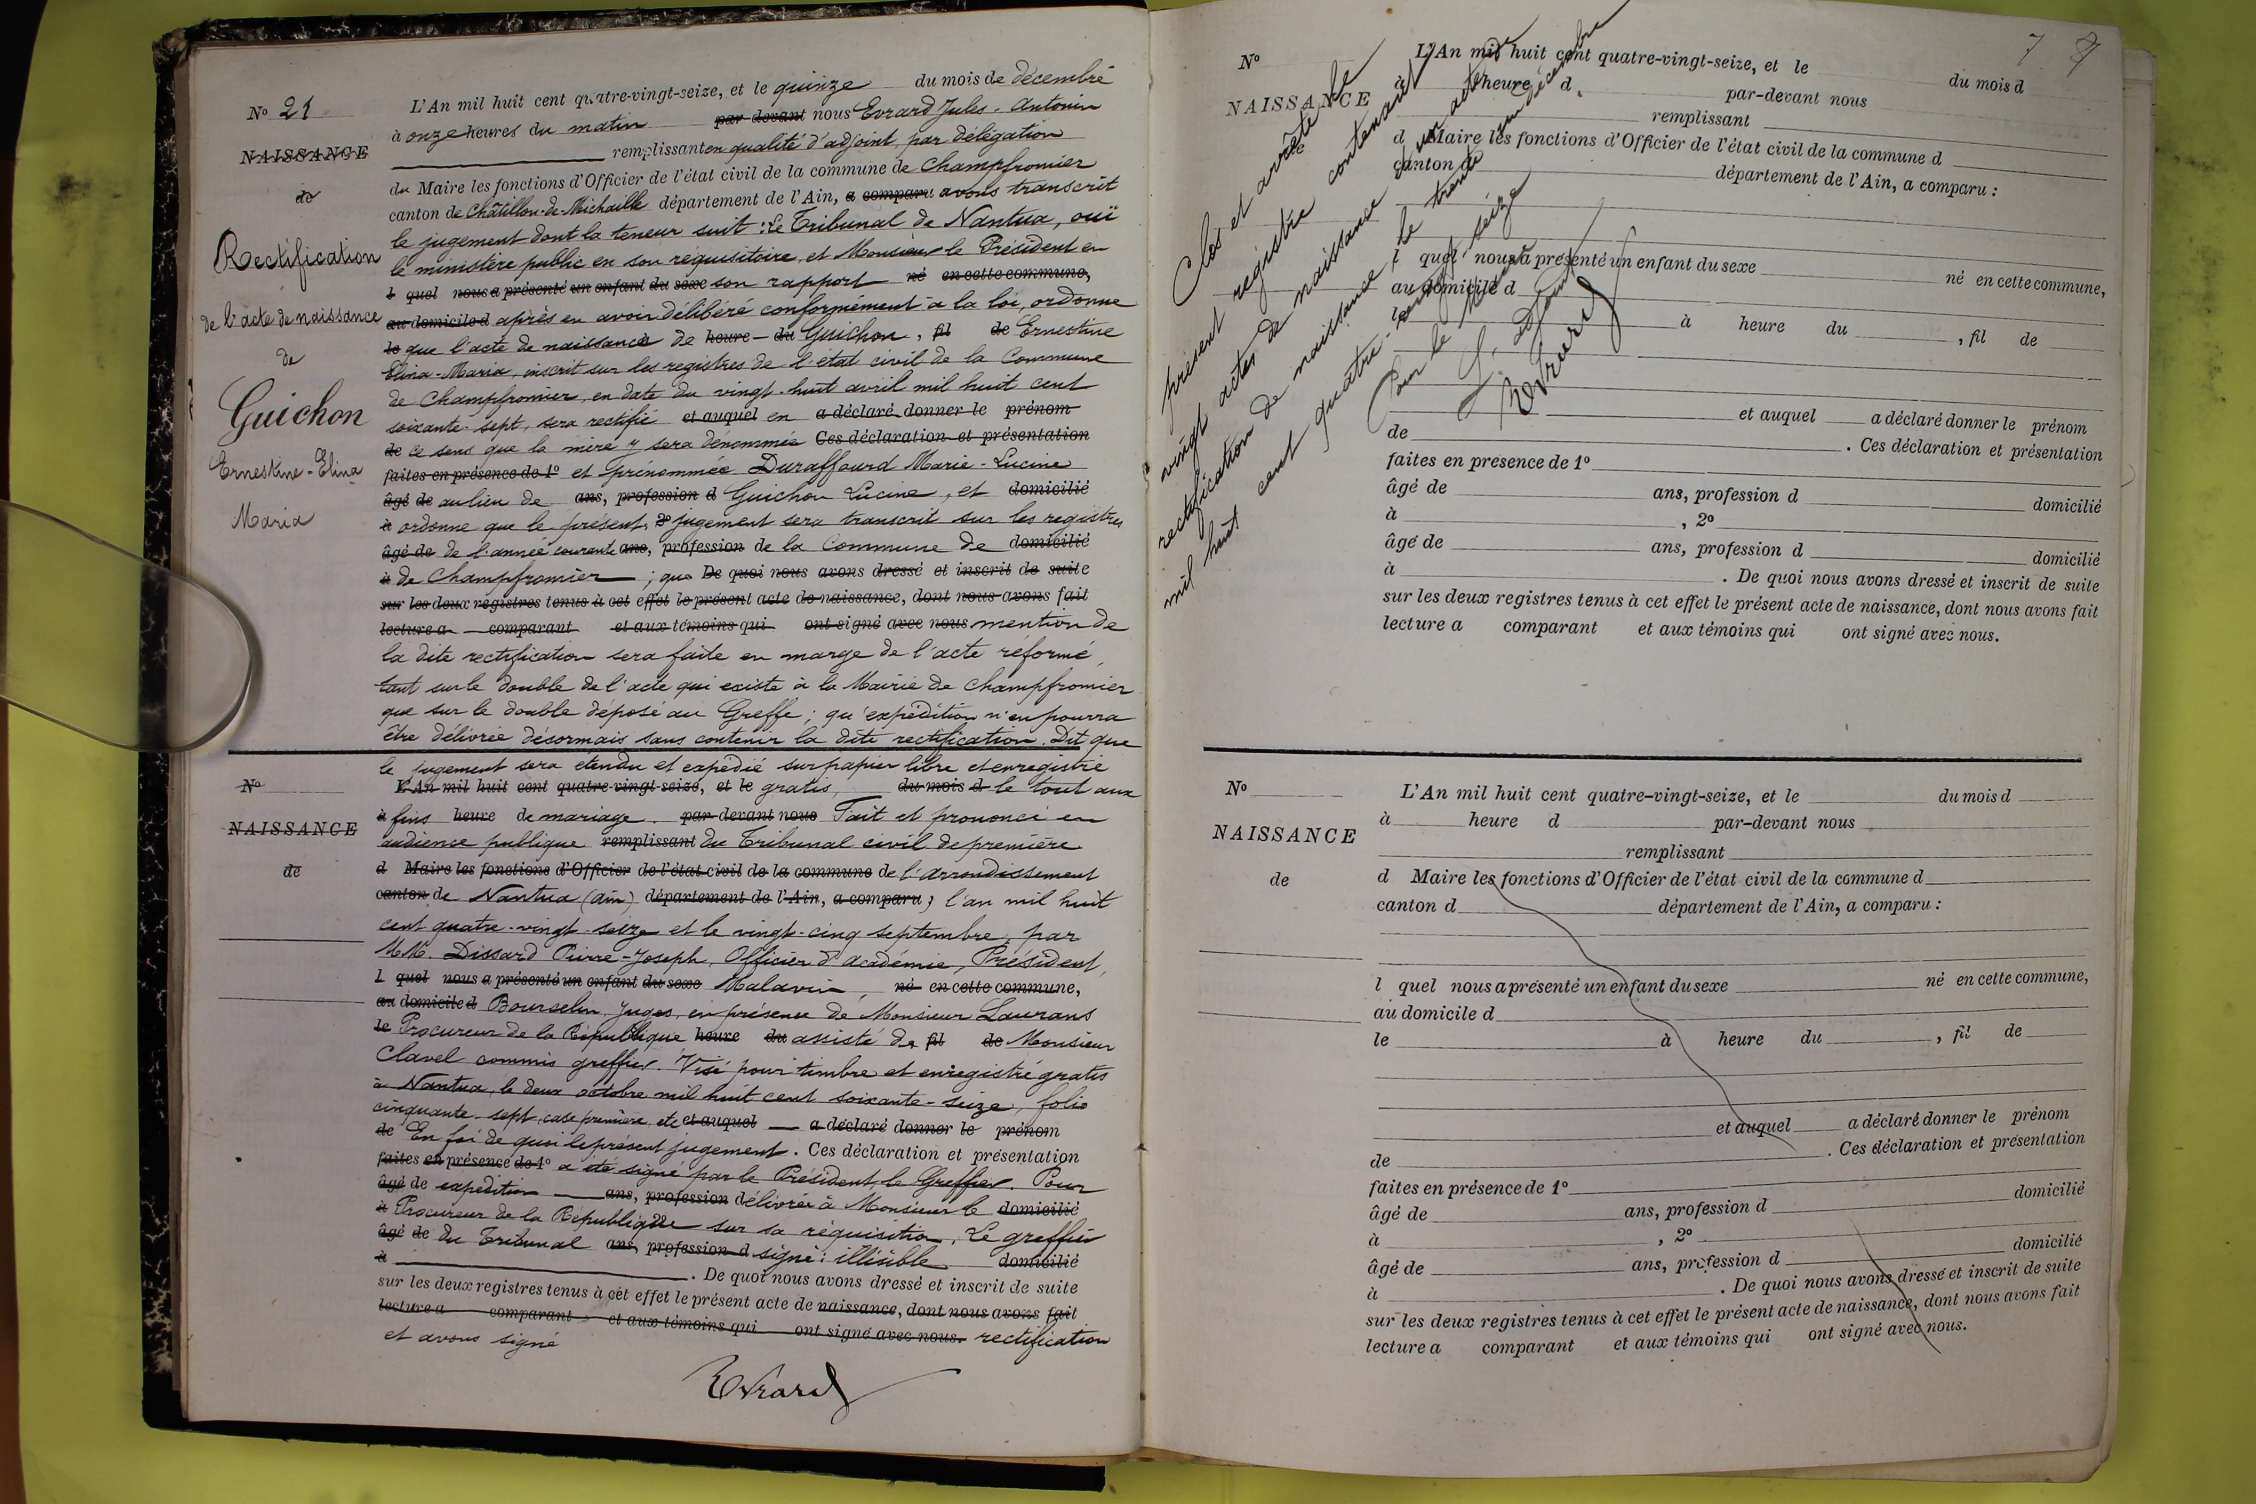 N° 21
NAISSANCE
de
Rectification
de l'acte de naissance
de
Guichon
Ernestine-Elina
Maria
L'An mil huit cent quatre-vingt-seize, et le quinze du mois de décembre
à onze heures du matin par-devant nous Evrard Jules-Antonin
remplissant en qualité d'adjoint, par délégation
du Maire les fonctions d'Officier de l'état civil de la commune de Champfromier
canton de Châtillon-de-Michaille département de l'Ain, a comparu avons transcrit
le jugement dont la teneur suit : Le Tribunal de Nantua, ouï
le ministère public en son réquisitoire, et Monsieur le Président en
l quel nous a présenté un enfant du sexe son rapport né en cette commune,
au domicile d après en avoir délibéré conformément à la loi, ordonne
le que l'acte de naissance à de heure du Guichon, fil de Ernestine
Elina-Maria, inscrit sur les registres de l'état civil de la Commune
de Champfromier, en date du vingt-huit avril mil huit cent
soixante-sept, sera rectifié et auquel en a déclaré donner le prénom
de ce sens que la mère y sera dénommée Ces déclaration et présentation
faites en présence de 1° et prénommée Duraffourd Marie-Lucine
âgé de au lieu de ans, profession d Guichon Lucine, et domicilié
à ordonne que le présent, 2° jugement sera transcrit sur les registres
âgé de de l'année courante ans, profession de la Commune de domicilié
à de Champfromier ; que De quoi nous avons dressé et inscrit de suite
sur les deux registres tenus à cet effet le présent acte de naissance, dont nous avons fait
lecture a comparant et aux témoins qui ont signé avec nous mention de
la dite rectification sera faite en marge de l'acte réformé,
tant sur le double de l'acte qui existe à la Mairie de Champfromier
que sur le double déposé au Greffe ; qu'expédition n'en pourra
être délivrée désormais sans contenir la dite rectification. Dit que
le jugement sera étendu et expédié sur papier libre et enregistré
N°
NAISSANCE
de
L'An mil huit cent quatre-vingt-seize, et le gratis, du mois d le tout aux
à fins heure de mariage. par-devant nous Fait et prononcé en
audience publique remplissant du Tribunal civil de première
d Maire les fonctions d'Officier de l'état civil de la commune de l'arrondissement
canton de Nantua (Ain) département de l'Ain, a comparu ; l'an mil huit
cent quatre-vingt-seize et le vingt-cinq septembre, par
MM. Dissard Pierre-Joseph, Officier d'académie, Président,
l quel nous a présenté un enfant du sexe Malavun, né en cette commune,
au domicile d Bourselin, juges, en présence de Monsieur Laurans
le Procureur de la République heure du assisté de fil de Monsieur
Clavel commis greffier. Visé pour timbre et enregistré gratis
à Nantua, le deux octobre mil huit cent soixante-seize, folio
cinquante-sept, case première, etc et auquel a déclaré donner le prénom
de En foi de quoi le présent jugement. Ces déclaration et présentation
faites en présence de 1° a été signé par le Président, le Greffier. Pour
âgé de expédition ans, profession délivrée à Monsieur le domicilié
à Procureur de la République 2° sur sa réquisition, Le greffier
âgé de du Tribunal ans, profession d signé : illisible domicilié
à . De quoi nous avons dressé et inscrit de suite
sur les deux registres tenus à cet effet le présent acte de naissance, dont nous avons fait
lecture a comparant et aux témoins qui ont signé avec nous. rectification
et avons signé
Evrard
7
Clos et arrêté le
présent registre contenant
vingt actes de naissance et un acte de
rectification de naissance, le trente un décembre
mil huit cent quatre-vingt-seize
Pour le Maire
Evrard
N°
NAISSANCE
de
L'An mil huit cent quatre-vingt-seize, et le du mois d
à heure d par-devant nous
remplissant
d Maire les fonctions d'Officier de l'état civil de la commune d
canton d département de l'Ain, a comparu :
l quel nous a présenté un enfant du sexe né en cette commune,
au domicile d
le à heure du , fil de
et auquel a déclaré donner le prénom
de . Ces déclaration et présentation
faites en présence de 1°
âgé de ans, profession d domicilié
à , 2°
âgé de ans, profession d domicilié
à . De quoi nous avons dressé et inscrit de suite
sur les deux registres tenus à cet effet le présent acte de naissance, dont nous avons fait
lecture a comparant et aux témoins qui ont signé avec nous.
N°
NAISSANCE
de
L'An mil huit cent quatre-vingt-seize, et le du mois d
à heure d par-devant nous
remplissant
d Maire les fonctions d'Officier de l'état civil de la commune d
canton d département de l'Ain, a comparu :
l quel nous a présenté un enfant du sexe né en cette commune,
au domicile d
le à heure du , fil de
et auquel a déclaré donner le prénom
de . Ces déclaration et présentation
faites en présence de 1°
âgé de ans, profession d domicilié
à , 2°
âgé de ans, profession d domicilié
à . De quoi nous avons dressé et inscrit de suite
sur les deux registres tenus à cet effet le présent acte de naissance, dont nous avons fait
lecture a comparant et aux témoins qui ont signé avec nous.